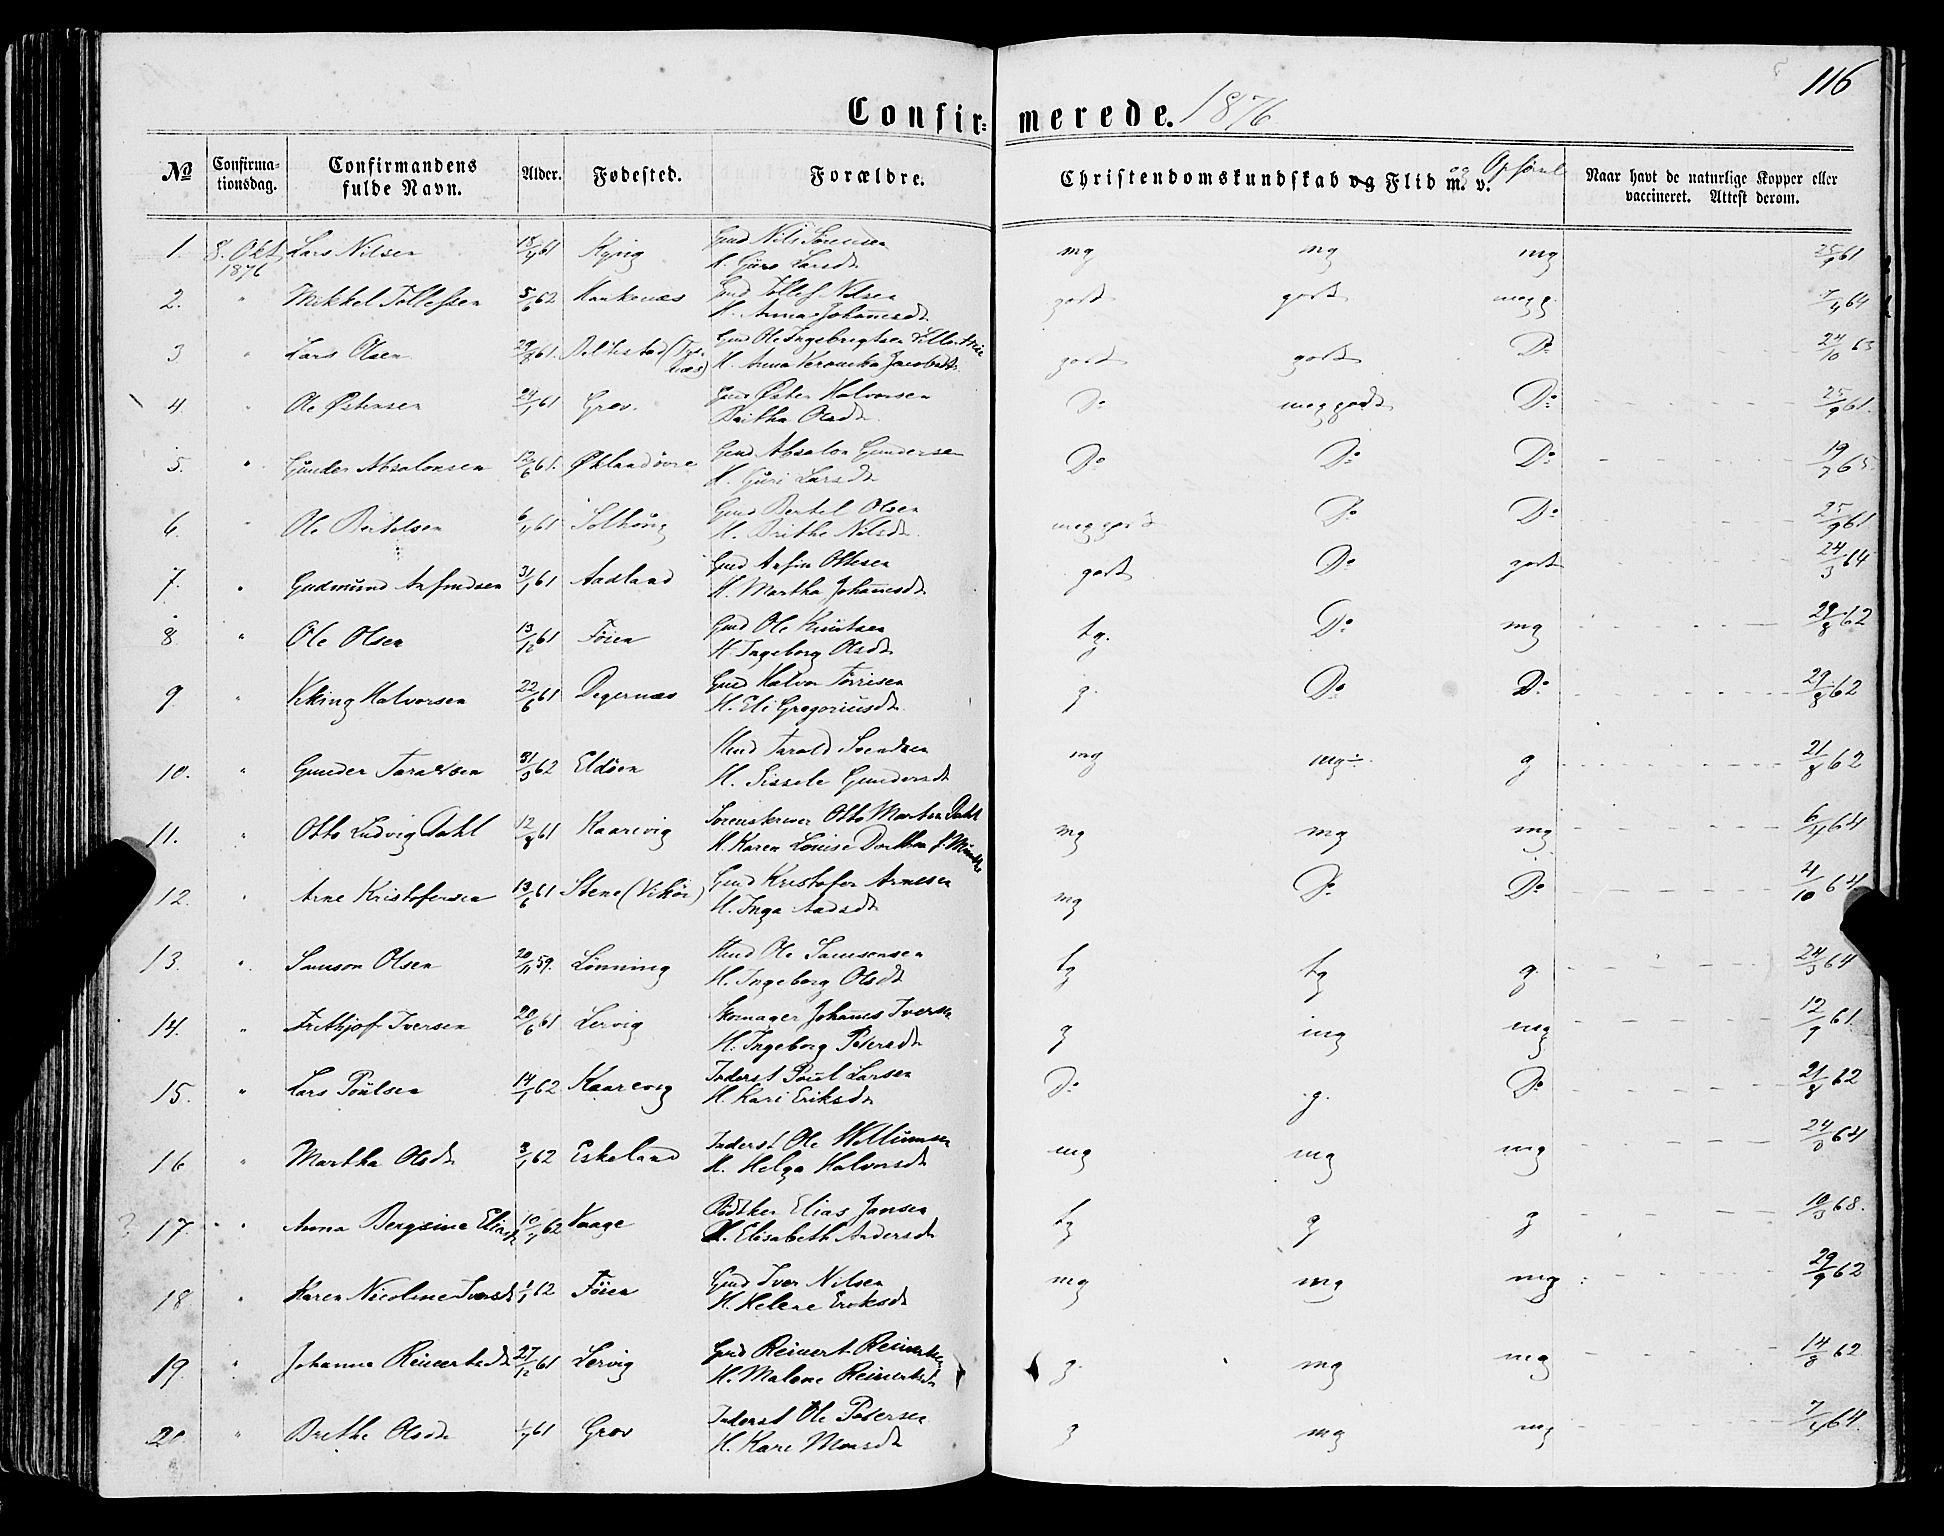 116
Confirmerede. 1876
No
Confirmationsdag.
Confirmandens fulde Navn.
Alder.
Fødested.
Forældre.
Christendomskundskab og Flid m. v. og Opførsel
Naar havt de naturlige Kopper eller vaccineret. Attest derom.
1. 8. Okt 1876 Lars Nilsen 18/4 61 Gmd Nils Sørensen H. Guro Larsdt mg mg mg 25/9 61
2. " Mikkel Tollefsen 5/6 62 Hankenæs Gmd Tollef Nilsen H. Anna Johannesdt godt godt meg g. 7/4 64
3 " Lars Olsen 29/8 61 Gmd Ole Ingebrigtsen H. Anna Veronika Jacobsdt godt godt Do 24/10 63
4. " Ole Østensen 24/1 61 Grov. Gmd Østen Halvorsen Britha Olsdt Do meg godt Do 25/9 61.
5. " Gunder Absalonsen 12/6 61. Øklandøvre Gmd Absalon Gundersen H. Guri Larsdt Do Do Do 19/7 65
6. " Ole Bertelsen 6/4 61 Gmd Bertel Olsen H. Brithe Nilsdt meg godt Do Do 25/9 61
7. " Gudmund Anfindsen 31/1 61 Aadland Gmd Anfin Ottesen H. Martha Johannesdt godt Do godt 24/3 64
8 " Ole Olsen 13/12 61 Føien Gmd Ole Knutsen H. Ingeborg Olsdt tg. Do mg 29/8 62
9 " Viking Halvorsen 22/6 61 Degernæs Gmd Halvor Torrisen H. Eli Gregoriusdt g. Do Do 29/8 62
10. " Gunder Taraldsen 31/3 62 Eldøen Hmd Tarald Svendsen H. Sissele Gundersdt mg mg÷ g 21/8 62
11. " Otto Ludvig Dahl 12/8 61 Kaarevig Sorenskriver Otto Martin Dahl H. Karen Louise Dorthea f. Munthe mg mg mg 6/4 64
12. " Arne Kristofersen 13/6 61 Stene (Vikør) Gmd Kristofer Arnesen H. Inga Aadsdt mg Do Do 4/10 64
13. " Samson Olsen 20/11 59. Lønning Hmd Ole Samsonsen H. Ingeborg Olsdt tg tg g. 24/3 64
14. " Frithjof Iversen 20/6 61 Lervig Skomager Johannes Iversen H. Ingeborg Petersdt g mg mg 12/9 61.
15. " Lars Poulsen 14/1 62 Kaarevig Inderst Poul Larsen H. Kari Eriksdt Do g. Do 21/8 62
16 " Martha Olsdt 3/1 62 Eskeland Inderst Ole Willumsen H. Helga Halvorsdt mg mg mg 24/8 64
17. " Anna Bergsine Eliasdt 10/4 62 Vaage Bødker Elias Jansen H. Elisabeth Andersdt tg g g 10/3 68.
18 " Karen Nicoline Iversdt 1/1 62 Føien Gmd Iver Nilsen H. Helene Eriksdt mg mg mg 29/9 62
19. " Johanna Reinertsdt 27/12 61 Lervig Gmd Reinert Reinertsen H. Malene Reinertsdt g. mg mg 14/8 62
20. " Brithe Olsdt 1/7 61 Grov Inderst Ole Petersen H. Kari Monsdt g mg mg 7/4 64.